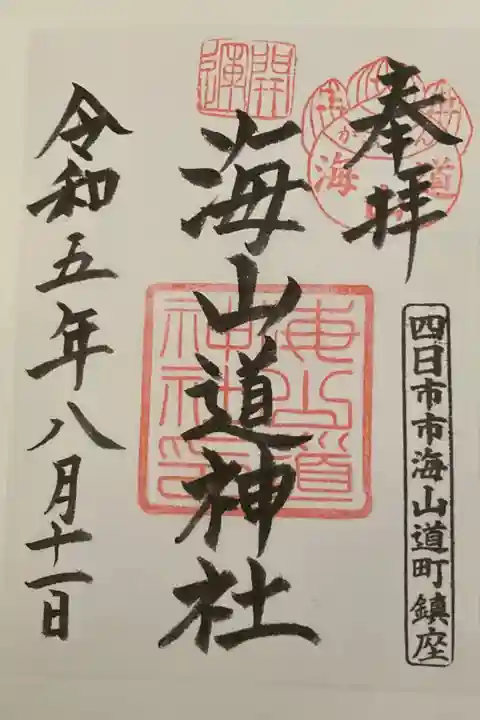 奉拝
四日市市海山道町鎮座
開運
海山道神社
海山道神社印
令和五年八月十一日